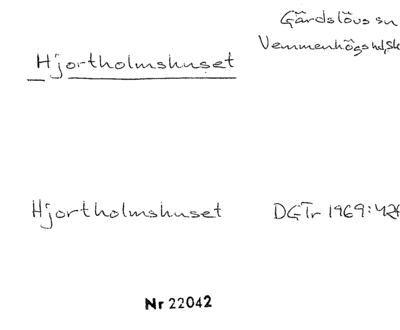 Gärdslövs sn
Vemmenhögs hd, Sk
Hjortholmshuset
Hjortholmshuset DGTr 1969:
Nr 22042